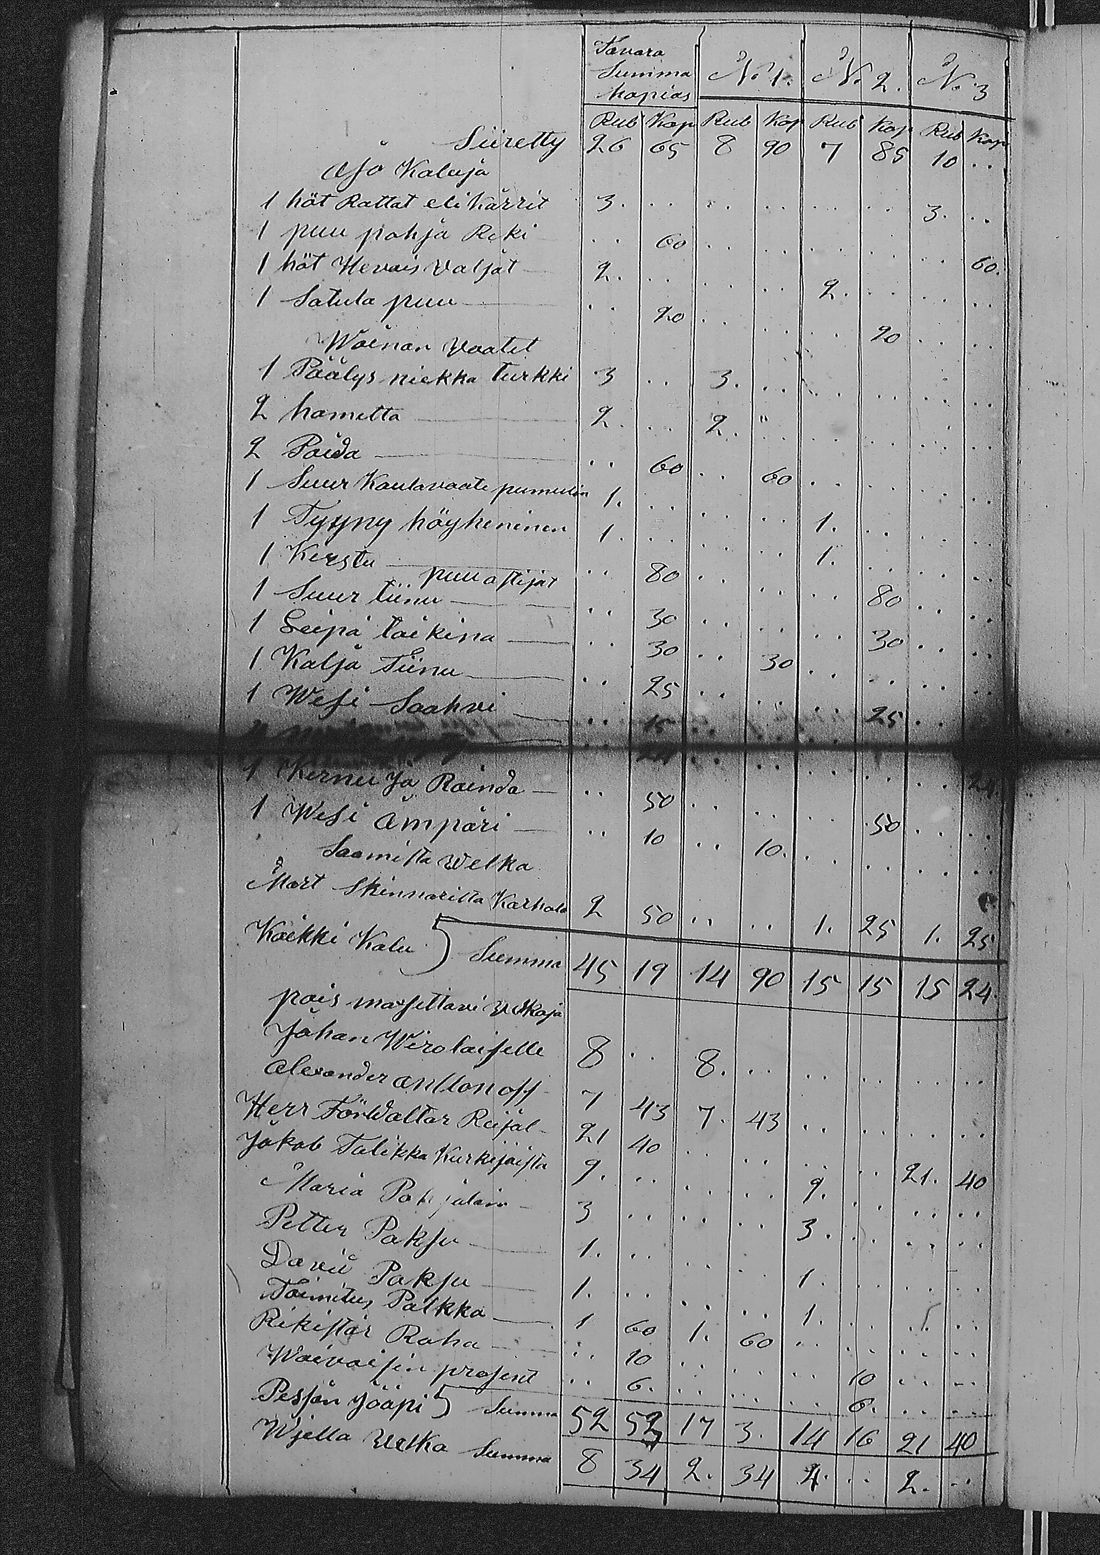 Tavara
Summa
kopias No 1. No 2. No 3
Rub Kop Rub Kop Rub Kop Rub Kop
Siiretty 26 65 8 90 7 85 10 ..
Ajo Kaluja
1 höt Rattat eli Kärrit 3. .. .. .. .. .. 3. ..
1 puu pohja Reki .. 60 .. .. .. .. .. 60.
1 höt Hevois Valjat 2. .. .. .. 2. .. .. ..
1 Satula puu .. 20 .. .. .. 20 .. ..
Wainan Vaatet
1 Päälys niekka turkki 3 .. 3. .. .. .. .. ..
2 hametta 2. .. 2. .. .. .. .. ..
2 Paida .. 60 .. 60 .. .. .. ..
1 Suur Kaulavaate pumulin 1. .. .. .. 1. .. .. ..
1 Tyyny höyheninen 1. .. .. .. 1. .. .. ..
1 Kirstu .. 80 .. .. .. 80 .. ..
puu astijat
1 Suur tiinu .. 30 .. .. .. 30 .. ..
1 Leipä taikina .. 30 .. 30 .. .. .. ..
1 Kalja Tiinu .. 25 .. .. .. 25 .. ..
1 Wesi Saahvi .. 15
24 .. .. .. .. .. 24.
1 Kirnu Ja Rainda .. 50 .. .. .. 50 .. ..
1 Wesi ämpäri .. 10 .. 10. .. .. .. ..
Saamista Welka
Mart Skinnarilta 2 50 .. .. 1. 25 1. 25
Kaikki Kalu Summa 45 19 14 90 15 15 15 24.
pois maxettavi Velkoja
Johan Wirolaiselle 8 .. 8. .. .. .. .. ..
Alexander Anttonoff 7 43 7. 43 .. .. .. ..
Herr Förvaltar 21 40 .. .. .. .. 21. 40
Jakob Talikka Kurkijoista 9. .. .. .. 9. .. .. ..
Maria Pohjalain 3 .. .. .. 3. .. .. ..
Petter Paksu 1. .. .. .. 1. .. .. ..
David Paksu 1. .. .. .. 1. .. .. ..
Toimitus Palkka 1 60 1. 60 .. .. .. ..
Rikistär Raha .. 10 .. .. .. 10 .. ..
Waivaisin prosent .. 6. .. .. .. 6. .. ..
Pesän Jääpi Summa 52 53 17 3. 14 16 21 40
Wjella Velka Summa 8 34 2. 34 4. .. 2. ..